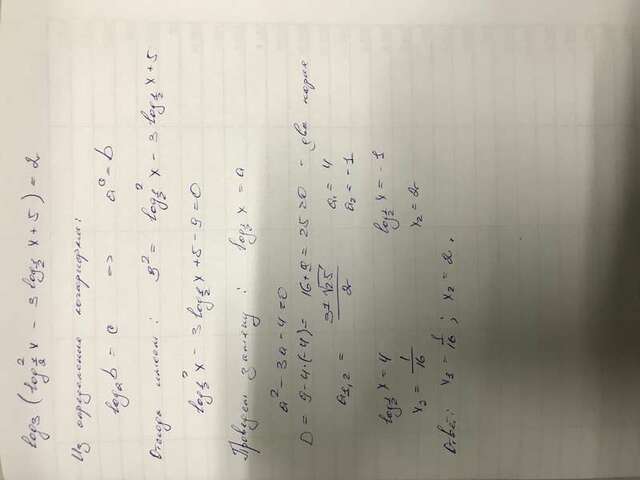 log₃ (log²_{1/2} x − 3 log_{1/2} x + 5) = 2
Из определения логарифма:
logₐ b = c => aᶜ = b
Отсюда имеем: 3² = log²_{1/2} x − 3 log_{1/2} x + 5
log²_{1/2} x − 3 log_{1/2} x + 5 − 9 = 0
Проведем замену: log_{1/2} x = a
a² − 3a − 4 = 0
D = 9 − 4·(−4) = 16 + 9 = 25 > 0 − два корня
a₁,₂ = (3 ± √25)/2 a₁ = 4
a₂ = −1
log_{1/2} x = 4 log_{1/2} x = −1
x₁ = 1/16 x₂ = 2
Ответ: x₁ = 1/16 ; x₂ = 2.